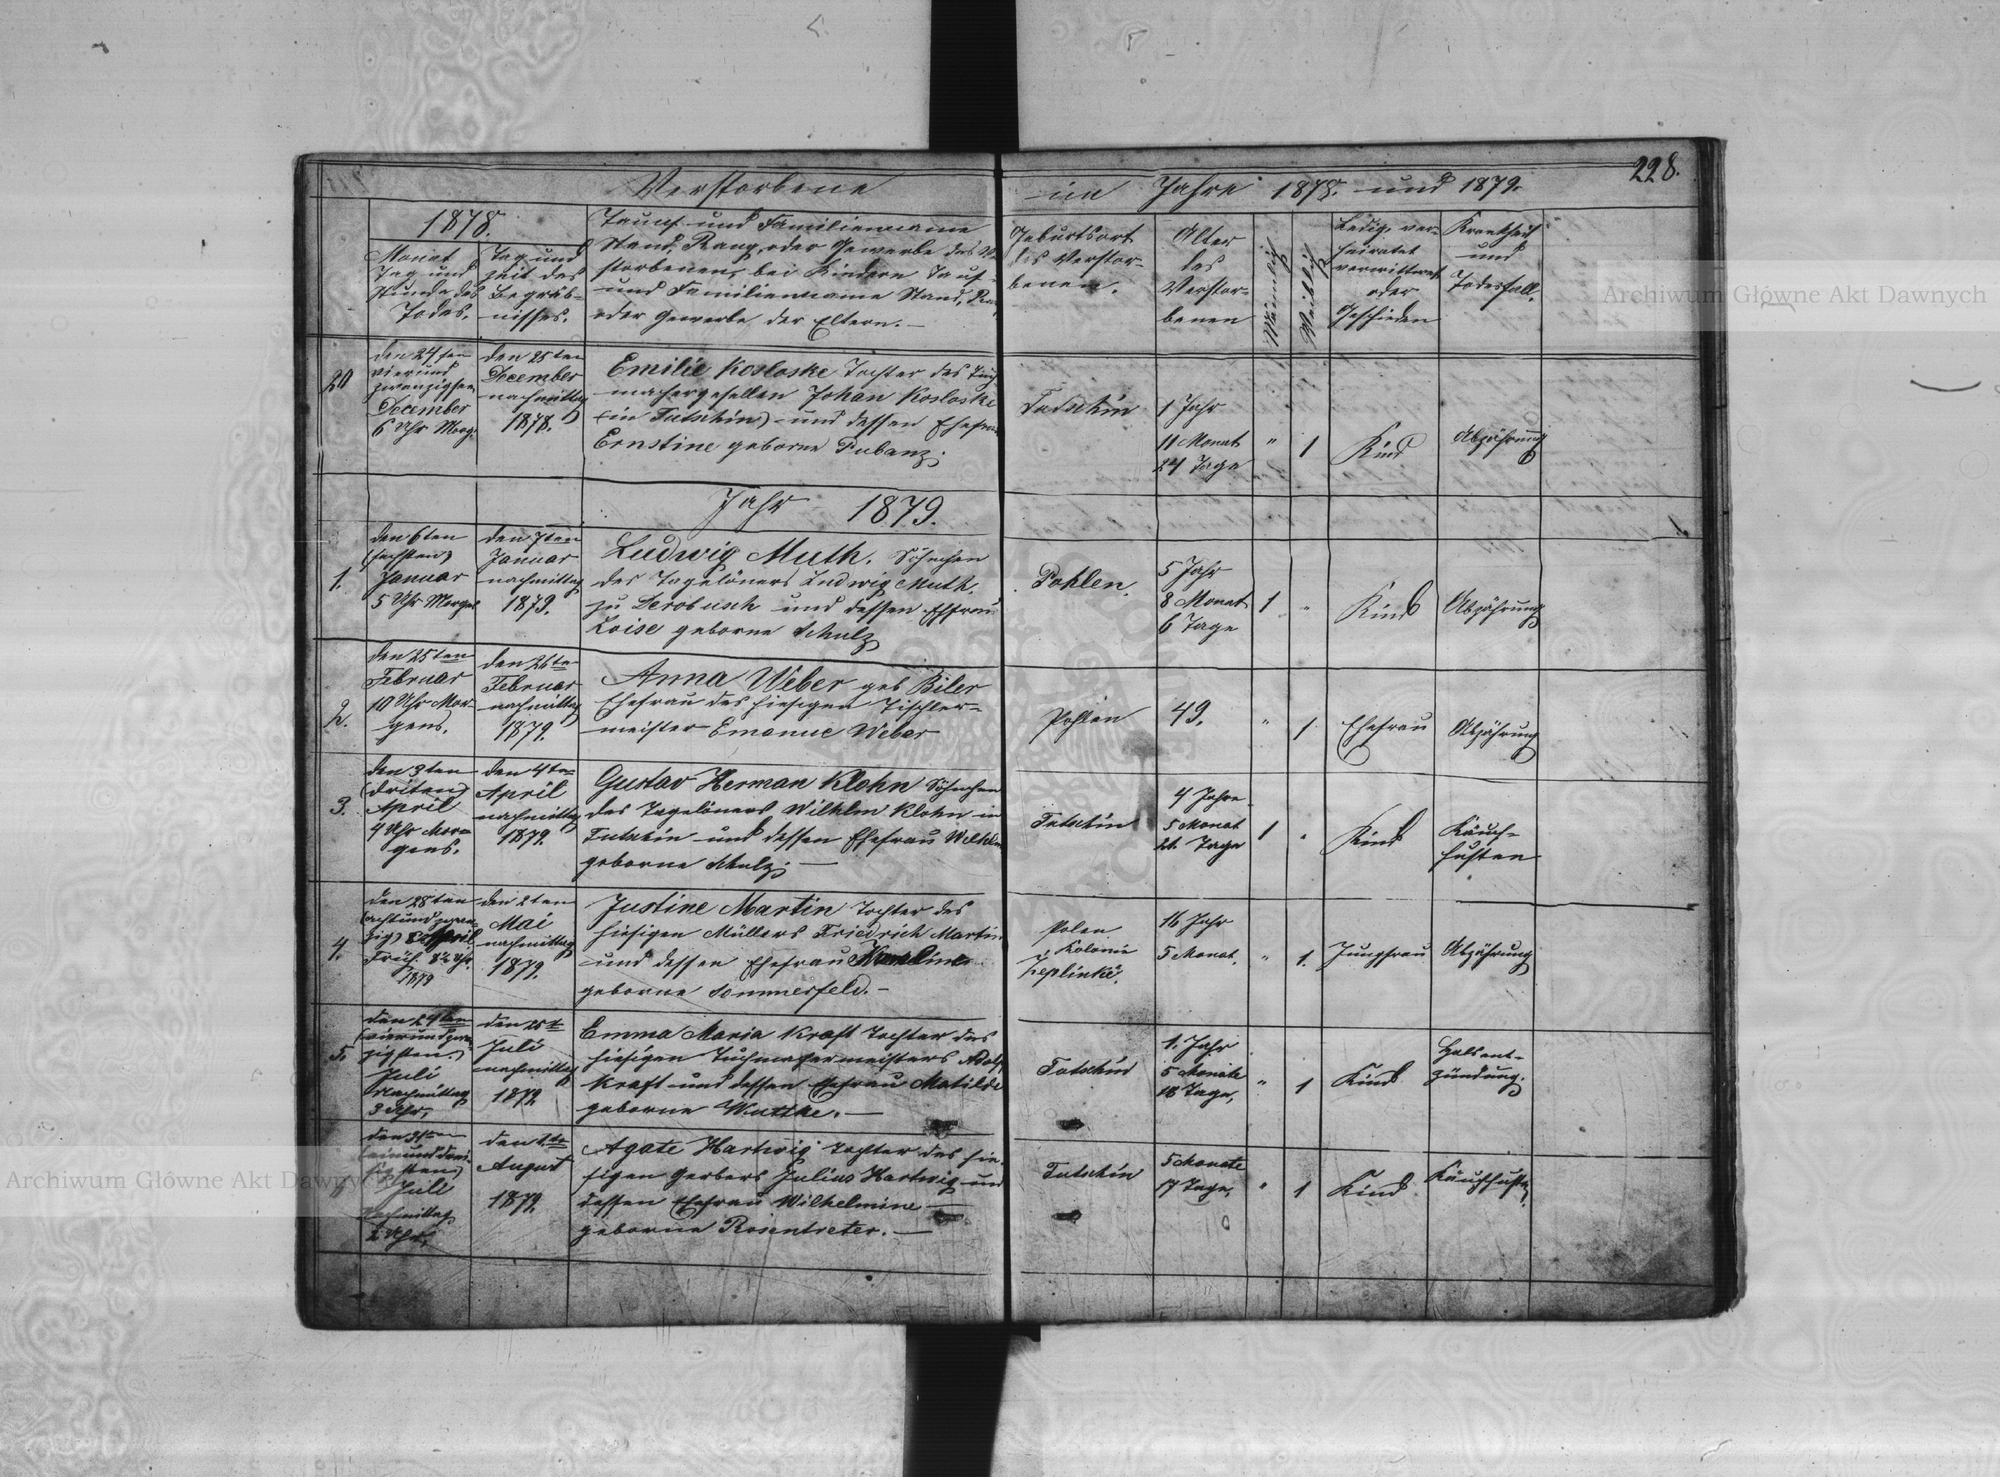 Verstorbene im Jahre 1878. und 1879.
228.
1878.
Monat
Tag und
Stunde des
Todes.
Tag und
Zeit des
Begräb-
nisses.
Tauf- und Familienname
Stand, Rang, oder Gewerbe des Ver-
storbenen, bei Kindern Tauf-
und Familienname Stand, Rang
oder Gewerbe der Eltern. —
Geburtsort
des Verstor-
benen.
Alter
des
Verstor-
benen
Männlich
Weiblich
Ledig, ver-
heiratet
verwittwet
oder
Geschieden
Krankheit
und
Todesfall.
20
den 24ten
vierund
zwanzigsten
December
6 Uhr Morg.
den 25ten
December
nachmittag
1878.
Emilie Kosloske Tochter des Tuch-
machergesellen Johan Kosloske
(in Tutschin) und dessen Ehefrau
Ernstine geborne Pubanz.
Tutschin
1 Jahr
11 Monat
24 Tage
" 1
Kind
Abzährung
Jahr 1879.
1.
den 6ten
(sechsten)
Januar
5 Uhr Morgen
den 7ten
Januar
nachmittag
1879.
Ludwig Muth. Söhnchen
des Tagelöners Ludwig Muth.
zu und dessen Ehefrau
Loise geborne Schulz
Pohlen.
5 Jahr
8 Monat
6 Tage
1 "
Kind
Abzährung
2.
den 25ten
Februar
10 Uhr Mor-
gens.
den 26te
Februar
nachmittag
1879.
Anna Weber geb Biler
Ehefrau des hiesigen Tischler-
meister Emanuel Weber
Pohlen
49.
" 1.
Ehefrau
Abzährung
3.
den 3ten
(driten)
April
4 Uhr Mor-
gens.
den 4te
April
nachmittag
1879.
Gustav Herman Klohn Söhnchen
des Tagelöners Wilhlm Klohn in
Tutschin und dessen Ehefrau
geborne Schulz. —
Tutschin
4 Jahre
5 Monat
21. Tage
1 "
Kind
Käuch-
husten
4.
den 28ten
(achtundzwan-
zig) April
Früh.
1879
den 2ten
Mai
nachmittag
1879.
Justine Martin Tochter des
hiesigen Müllers Friedrich Martin
und dessen Ehefrau Karoline
geborne Sommerfeld. —
Polen
Kolonie
16 Jahr
5 Monat.
" 1.
Jungfrau
Abzährung
5.
den 24ten
(vierundzwan-
zigsten)
Juli
Nachmittag
3 Uhr,
den 25t
Juli
nachmittag
1879.
Emma Maria Kraft Tochter des
hiesigen Tuchmachermeisters Adolf
Kraft und dessen Ehefrau Matilde
geborne Wuttke. —
Tutschin
1. Jahr
5 Monate
18 Tage,
" 1
Kind
Halsent-
zündung.
den 31ten
(einunddrei-
sigsten)
Juli
Nachmittag
2 Uhr,
den
August
1879.
Agate Hartwig Tochter des hie-
sigen Gerbers Julius Hartwig und
dessen Ehefrau Wilhelmine —
geborne Rosentreter. —
Tutschin
5 Monate
17 Tage,
" 1
Kind
Käuchhusten
Archiwum Główne Akt Dawnych
Archiwum Główne Akt Dawnych